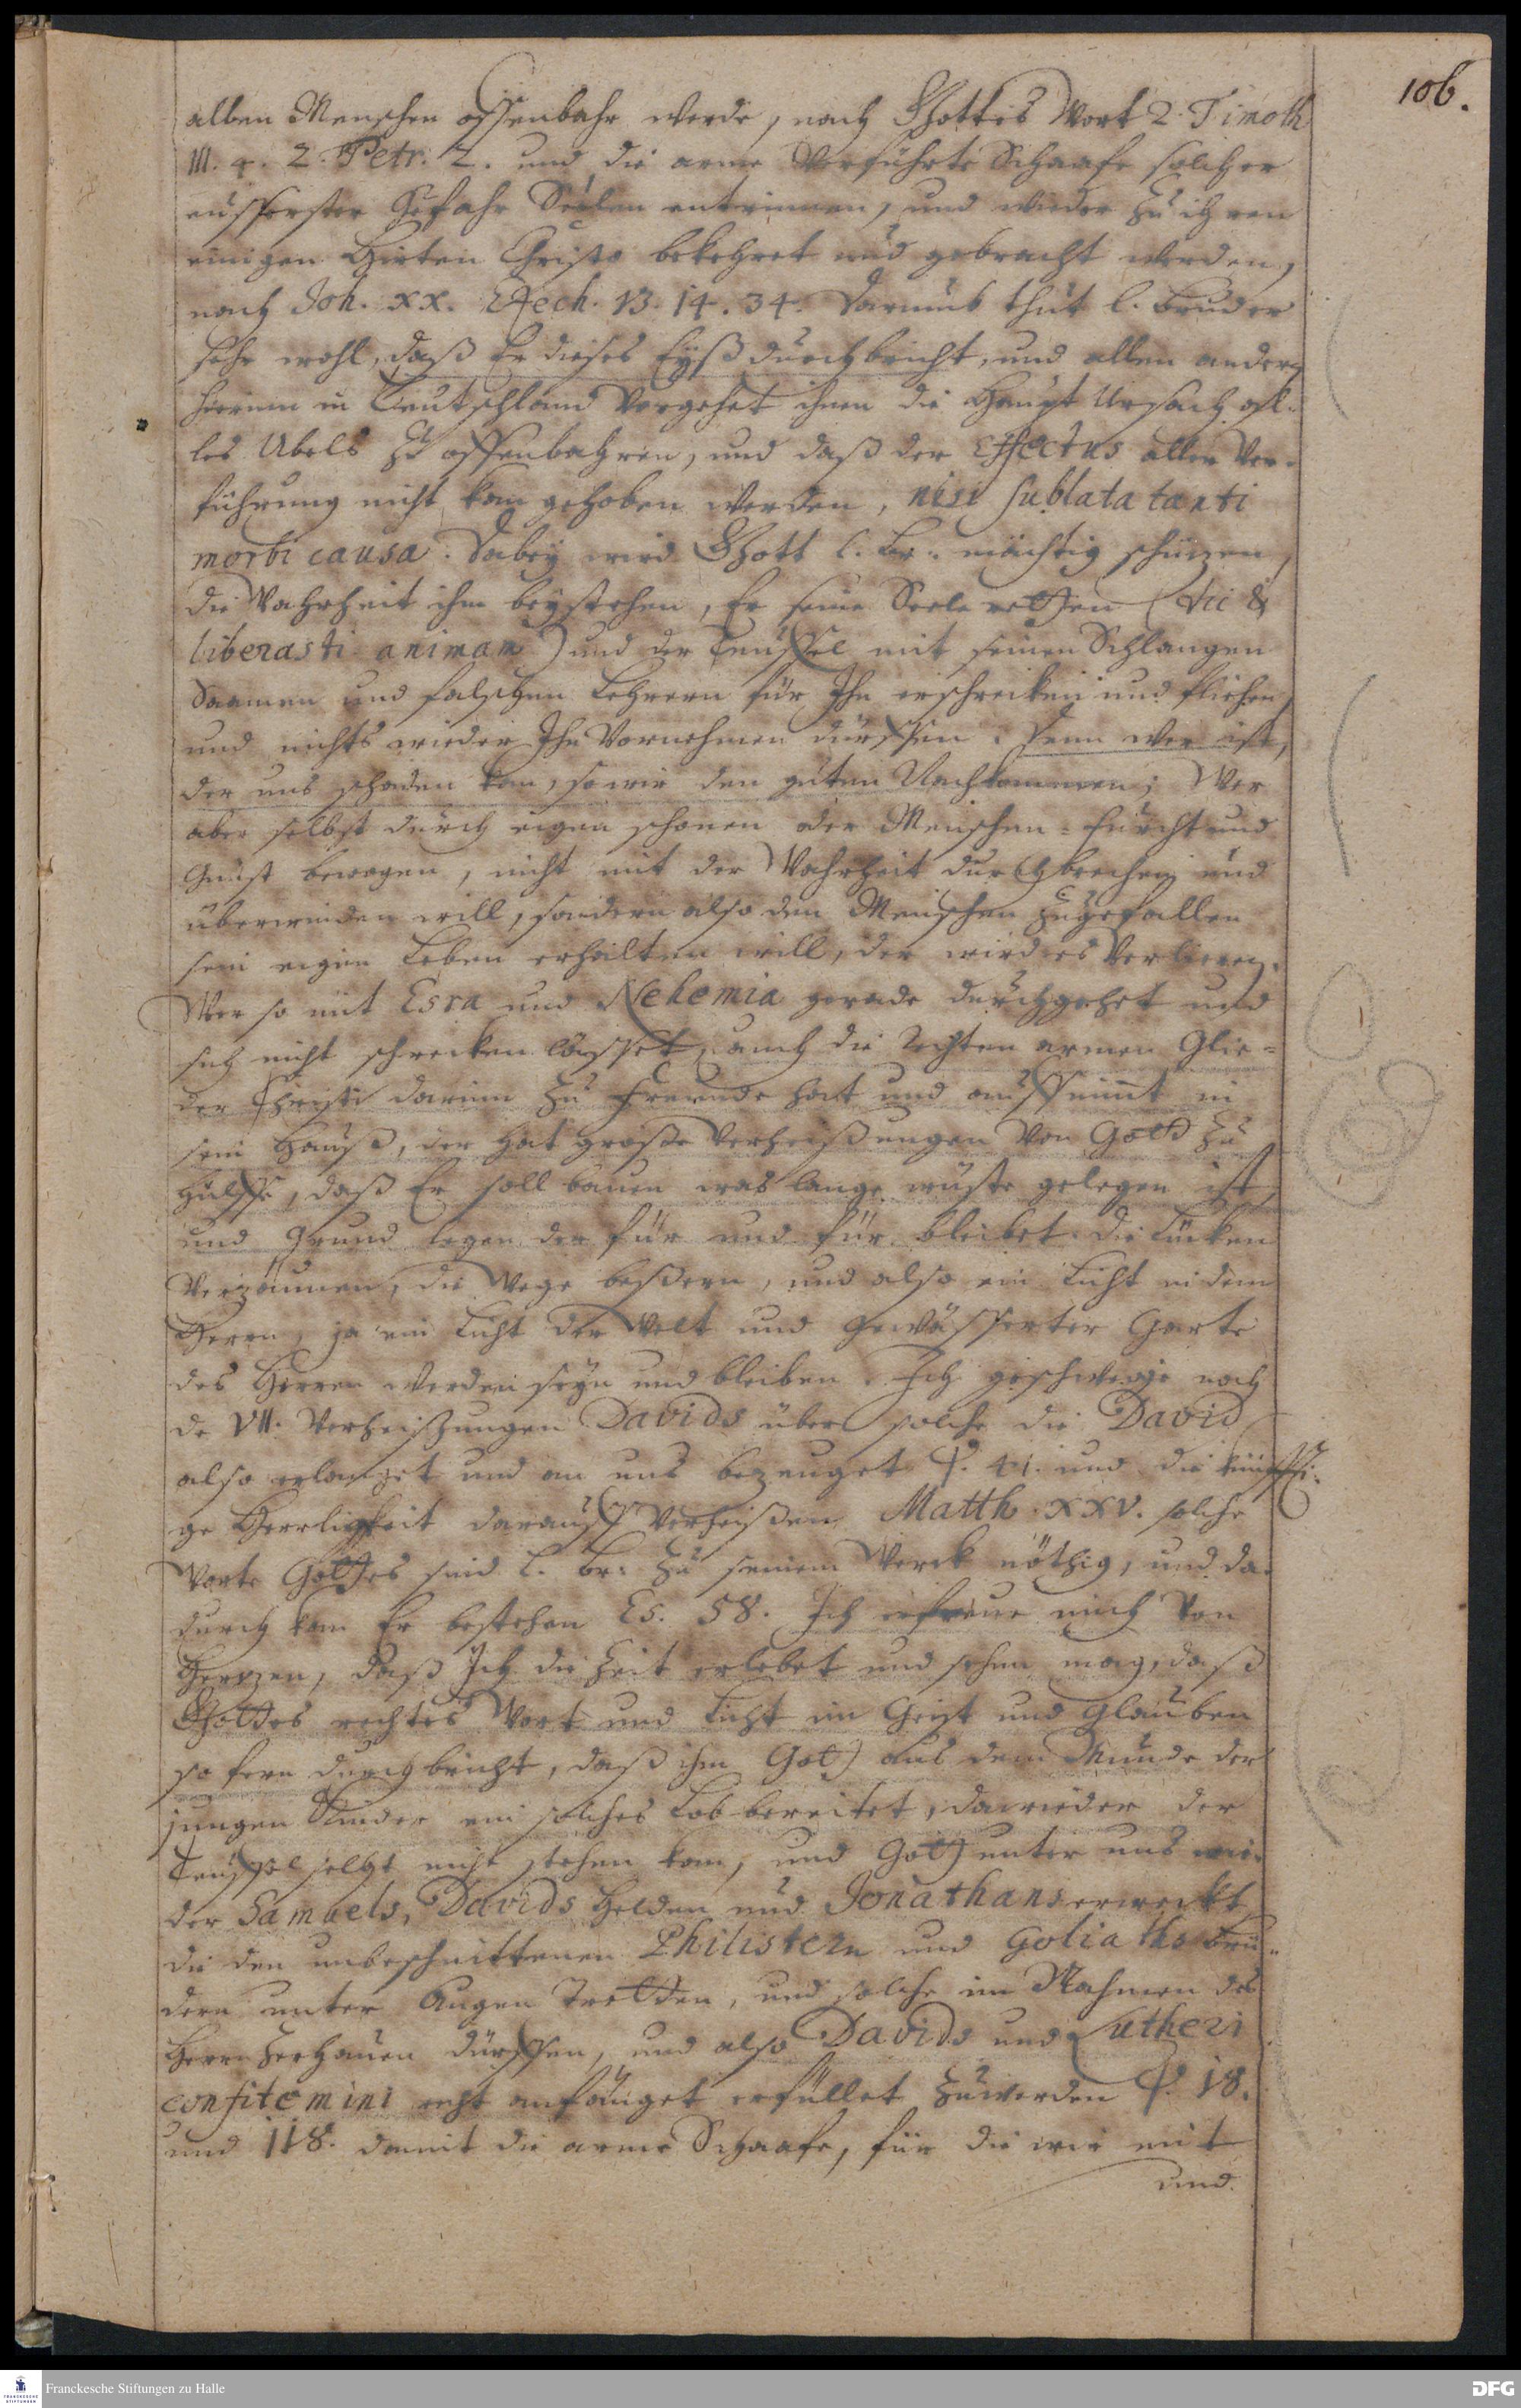 106.
allen Menschen offenbahr werde, nach Gottes Wort 2. Timoth
III. 4. 2. Petr. 2. und die arme verführte Schaafe solcher
eusserster Gefahr Seelen entrinnen, und wieder zu ihren
einigen Hirten Christo bekehret und gebracht werden,
nach Joh. XX. Ezech. 13. 14. 34. Darumb thut l. Bruder
sehr wohl, daß Er dieses Eyß durchbricht, und allen andern
hierinn in Teutschland vorgehet ihnen die Haupt Ursach al-
les Ubels zu offenbahren, und daß der Effectus aller Ver-
führung nicht kan gehoben werden, nisi sublata tanti
morbi causa. Dabey wird Gott l. Br. mächtig schüzen,
die Wahrheit ihm beystehen, Er seine Seele retten (dic &
liberasti animam) und der Teuffel mit seinen Schlangen
Saamen und falschen Lehrern für Ihn erschrecken und fliehen,
und nichts wieder Ihn vornehmen dürffen. Denn wer ist,
der uns schaden kan, so wir den guten Nachkommen; Wer
aber selbst durch eigen schonen oder Menschen-Furcht und
Gunst bewogen, nicht mit der Wahrheit durchbrechen und
überwinden will, sondern also den Menschen zugefallen
sein eigen Leben erhalten will, der wird es verlieren.
Wer so mit Esra und Nehemia gerade durchgehet und
sich nicht schrecken lässet, auch die rechten armen Glie-
der Christi darinn zu Freunde hat und auffnimt in
sein Hauß, der hat große Verheißungen von Gott zu
Hülffe, daß Er soll bauen was lange wüste gelegen ist,
und Grund legen der für und für bleibet die Lücken
verzäunen, die Wege beßern, und also ein Licht in dem
Herrn, ja ein Licht der Welt und gewässerter Garte
des Herren werden seyn und bleiben. Ich geschweige noch
de VII. Verheißungen Davids über solche die David
also erlanget und an uns bezeuget ψ. 41. und die künffti-
ge Herrligkeit darauff verheißen Matth. XXV. solche
Worte Gottes sind l. Br. zu seinem Werck nöthig, und da-
durch kan Er bestehen Es. 58. Ich erfreue mich von
Herzen, daß Ich die Zeit erlebet und sehen mag, daß
Gottes rechtes Wort und Licht im Geist und Glauben
so fern durchbricht, daß ihm Gott aus dem Munde der
jungen Kinder ein solches Lob bereitet, dawieder der
Teuffel selbst nicht stehen kan, und Gott unter uns wie-
der Samuels, Davids Helden und Jonathans erweckt,
die den unbeschnittenen Philistern und Goliaths Brü-
dern unter Augen tretten, und solche im Nahmen des
Herrn zerhauen dürffen, und also Davids und Lutheri
confitemini recht anfänget erfüllet zu werden ψ. 18.
und 118. damit die arme Schaafe, für die wir mit
und
Franckesche Stiftungen zu Halle
FRANCKESCHE STIFTUNGEN
DFG